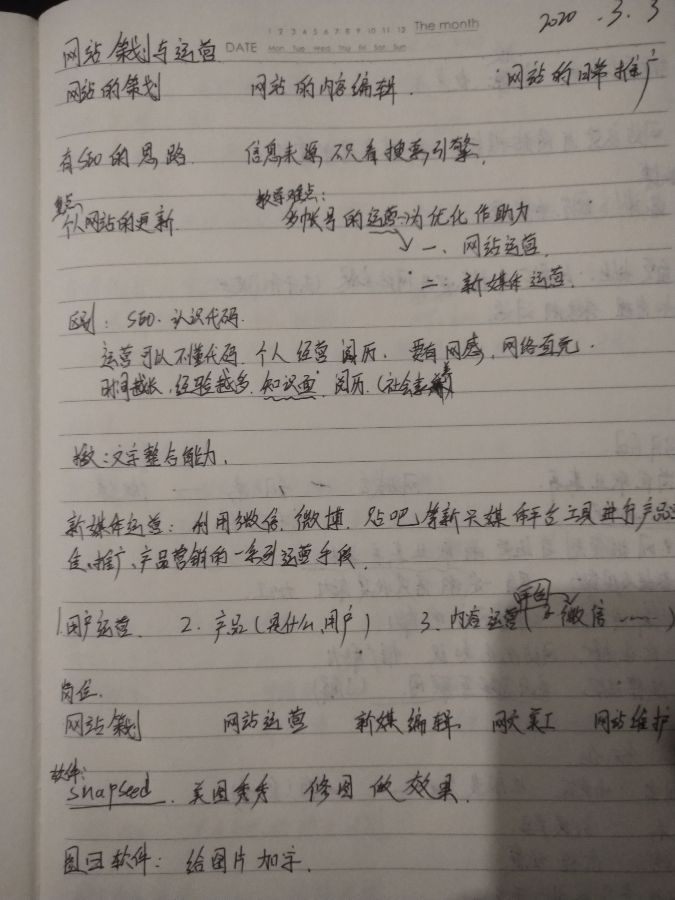 1 2 3 4 5 6 7 8 9 10 11 12 The month
2020.3.3
网站策划与运营
DATE Mon Tue Wed Thu Fri Sat Sun
网站的策划 网站的内容编辑. 网站的日常推广
有SEO的思路 信息来源不只看搜索引擎.
重点: 教学难点:
个人网站的更新 多帐号的运营→为优化作助力
一、网站运营.
二: 新媒体运营.
区别: SEO. 认识代码.
运营可以不懂代码. 个人经营阅历. 要有网感, 网络首先.
时间越长, 经验越多. 知识面, 阅历. (社会
文字整合能力.
新媒体运营: 利用微信, 微博, 贴吧等新兴媒体平台工具进行产品宣
传、推广、产品营销的一系列运营手段.
1.用户运营. 2. 产品(是什么、用户) 3. 内容运营(平台 微信......)
岗位.
网站策划 网站运营 新媒编辑 网页美工 网站维护
软件:
Snapseed. 美图秀秀 修图做效果.
软件: 给图片加字.